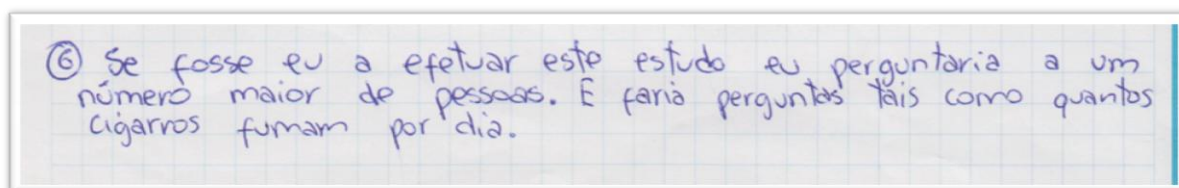 ⑥ Se fosse eu a efetuar este estudo eu perguntaria a um
número maior de pessoas. E faria perguntas tais como quantos
cigarros fumam por dia.